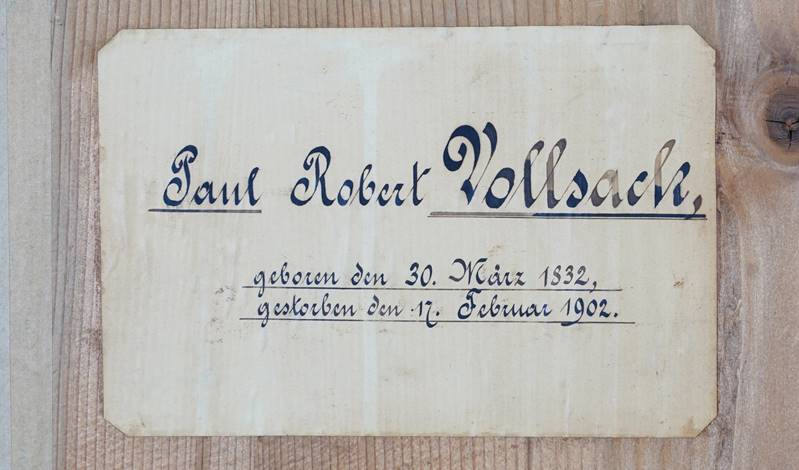 Paul Robert Vollsack,
geboren den 30. März 1832,
gestorben den 17. Februar 1902.